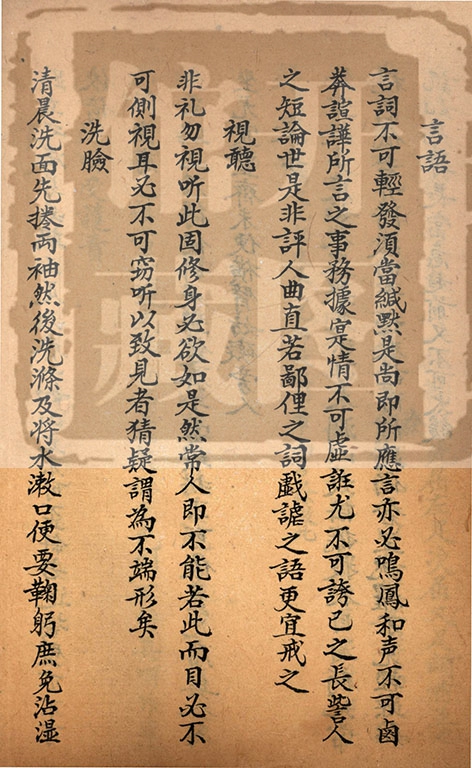 言語
言詞不可輕發須當緘默是尚即所應言亦必鳴鳳和声不可鹵
莽諠譁所言之事務據寔情不可虛誑尤不可誇己之長訾人
之短論世是非評人曲直若鄙俚之詞戯謔之語更宜戒之
視聽
非礼勿視听此固修身必欲如是然常人即不能若此而目必不
可側視耳必不可窃听以致見者猜疑謂為不端形矣
洗臉
清晨洗面先捲両袖然後洗滌及將水漱口便要鞠躬庶免沾湿